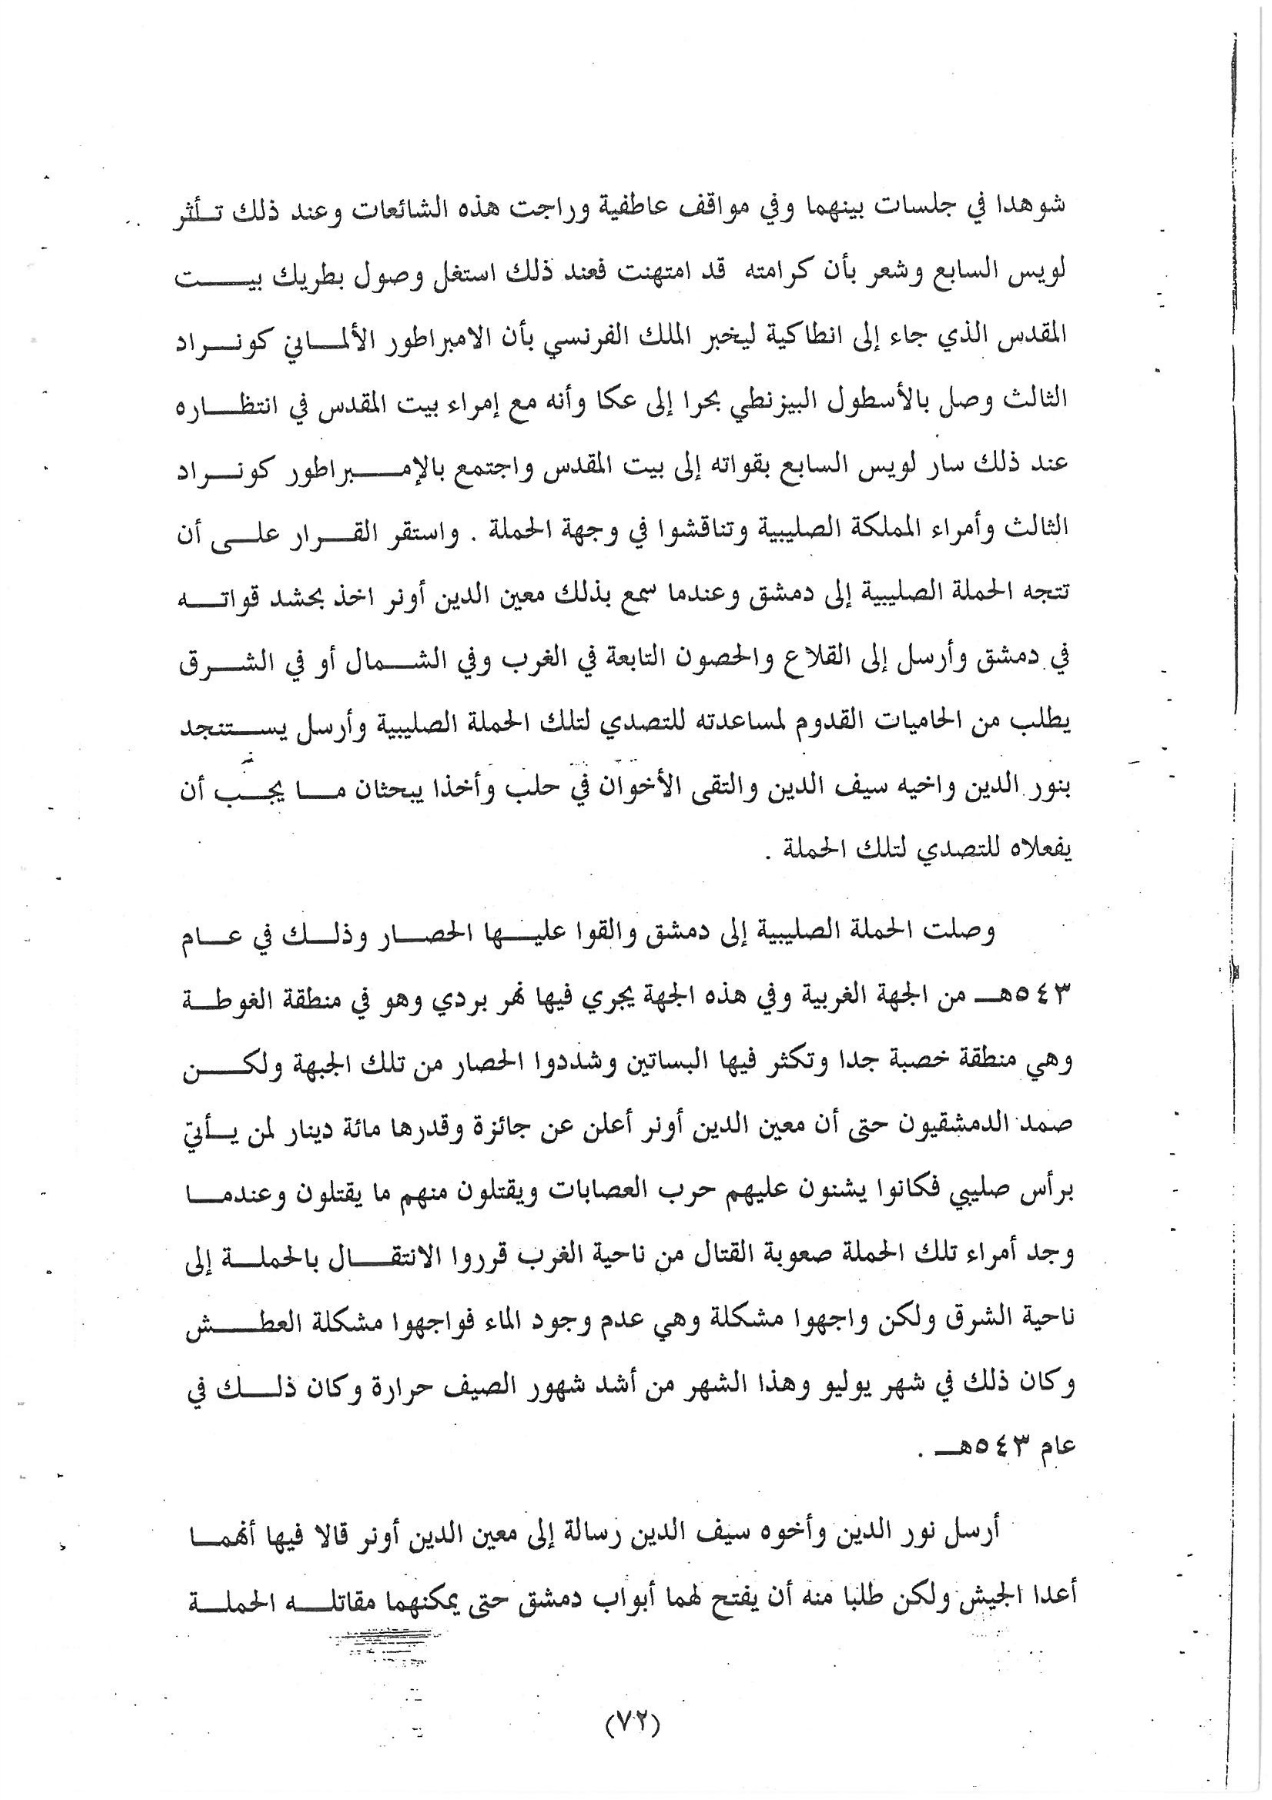 شوهدا في جلسات بينهما وفي مواقف عاطفية وراجت هذه الشائعات وعند ذلك تأثر
لويس السابع وشعر بأن كرامته قد امتهنت فعند ذلك استغل وصول بطريك بيت
المقدس الذي جاء إلى انطاكية ليخبر الملك الفرنسي بأن الامبراطور الألماني كونراد
الثالث وصل بالأسطول البيزنطي بحرا إلى عكا وأنه مع إمراء بيت المقدس في انتظاره
عند ذلك سار لويس السابع بقواته إلى بيت المقدس واجتمع بالإمبراطور كونراد
الثالث وأمراء المملكة الصليبية وتناقشوا في وجهة الحملة . واستقر القرار على أن
تتجه الحملة الصليبية إلى دمشق وعندما سمع بذلك معين الدين أونر اخذ بحشد قواته
في دمشق وأرسل إلى القلاع والحصون التابعة في الغرب وفي الشمال أو في الشرق
يطلب من الحاميات القدوم لمساعدته للتصدي لتلك الحملة الصليبية وأرسل يستنجد
بنور الدين واخيه سيف الدين والتقى الأخوان في حلب وأخذا يبحثان ما يجب أن
يفعلاه للتصدي لتلك الحملة .
وصلت الحملة الصليبية إلى دمشق والقوا عليها الحصار وذلك في عام
٥٤٣هـ من الجهة الغربية وفي هذه الجهة يجري فيها نهر بردي وهو في منطقة الغوطة
وهي منطقة خصبة جدا وتكثر فيها البساتين وشددوا الحصار من تلك الجبهة ولكن
صمد الدمشقيون حتى أن معين الدين أونر أعلن عن جائزة وقدرها مائة دينار لمن يأتي
برأس صليبي فكانوا يشنون عليهم حرب العصابات ويقتلون منهم ما يقتلون وعندما
وجد أمراء تلك الحملة صعوبة القتال من ناحية الغرب قرروا الانتقال بالحملة إلى
ناحية الشرق ولكن واجهوا مشكلة وهي عدم وجود الماء فواجهوا مشكلة العطش
وكان ذلك في شهر يوليو وهذا الشهر من أشد شهور الصيف حرارة وكان ذلك في
عام ٥٤٣هـ .
أرسل نور الدين وأخوه سيف الدين رسالة إلى معين الدين أونر قالا فيها أنهما
أعدا الجيش ولكن طلبا منه أن يفتح لهما أبواب دمشق حتى يمكنهما مقاتله الحملة
(٧٢)